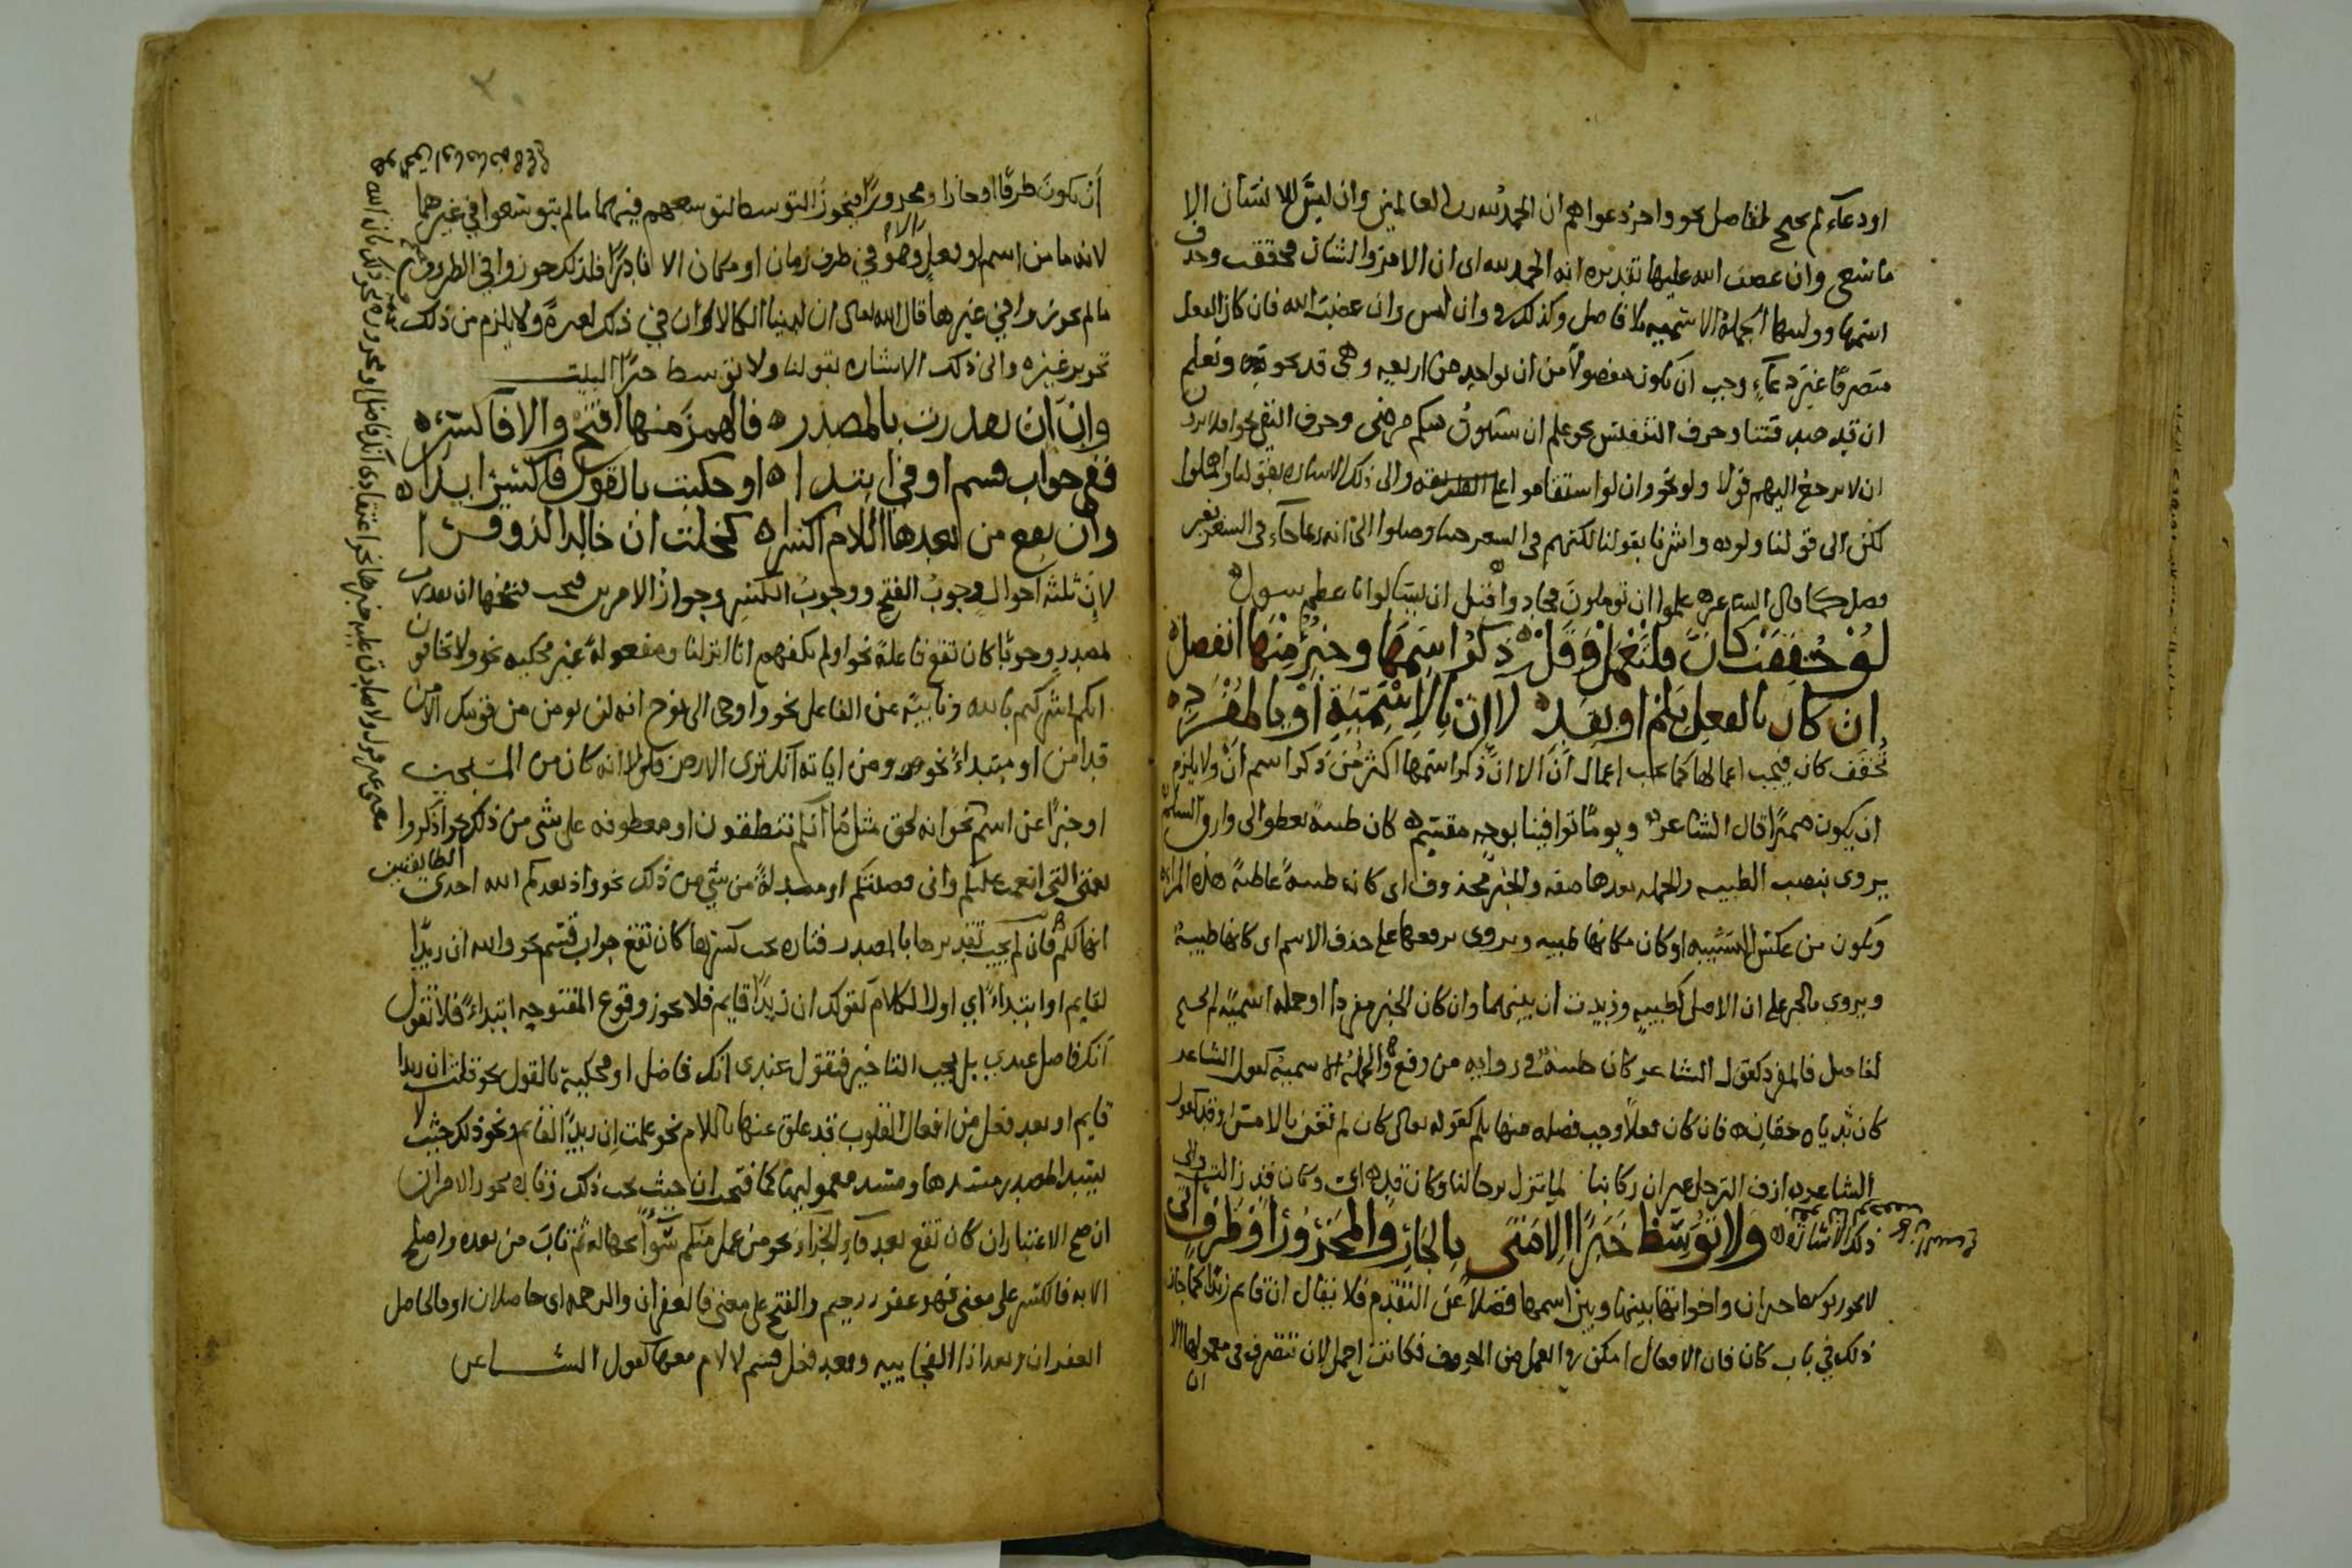 او دعاء لم يحتج لفاصل نحو وآخر دعواهم ان الحمد لله رب العالمين وان ليس للانسان الا
ما سعى وان غضب الله عليها تقديره انه الحمد لله اى ان الامر والشان فخففت وحذف
اسمها ووليتها الجملة الاسمية بلا فاصل وكذلك وان ليس وان غضب الله فان كان الفعل
متصرفا غير دعاء وجب ان يكون مفصولا من ان بواحد من اربعة وهى قد نحو ونعلم
ان قد صدقتنا وحرف التنفيس نحو علم ان سيكون منكم مرضى وحرف النفى نحو افلا يرون
ان لا يرجع اليهم قولا ولو نحو وان لو استقاموا على الطريقة والى ذلك الاشاره بقولنا واهملوا
لكن الى قولنا ولو واشرنا بقولنا لكنهم فى الشعر وصلوا الى انه ربما جاء فى الشعر بغير
فصل كما قال الشاعر علموا ان يؤملون فجادوا قبل ان يسالوا باعظم سول
لو خففت كان فلتعمل وقل ذكر اسمها وخبر منها انفصل
ان كان بالفعل بلم او بقد لا ان بالاسمية او بالمفرد
تخفف كان فيجب اعمالها كما يجب اعمال ان الا ان ذكر اسمها اكثر من ذكر اسم ان ولا يلزم
ان يكون ضميرا قال الشاعر ويوما توافينا بوجه مقسم كان ظبية تعطو الى وارق السلم
يروى بنصب الظبية والجملة بعدها صفة والخبر محذوف اى كان ظبية عاطية هذه المراة
ويكون من عكس التشبيه او كان مكانها ظبية ويروى برفعها على حذف الاسم اى كانها ظبية
ويروى بالجر على ان الاصل كظبية وزيدت ان بينهما وان كان الخبر مفردا او جملة اسمية لم يحتج
لفاصل فالمفرد كقول الشاعر كان ظبية فى رواية من رفع والجملة الاسمية كقول الشاعر
كان ثدياه حقان فان كان فعلا وجب فصله منها بلم كقوله تعالى كان لم تغن بالامس او قد كقول
الشاعر ازف الترحل غير ان ركابنا لما تزل برحالنا وكان قد اى وكان قد زالت والى
ذلك الاشارة ولا توسط خبرا الا متى بالجار والمجرور او ظرف اتى
لا يجوز توسط خبر ان واخواتها بينها وبين اسمها فضلا عن التقدم فلا يقال ان قايم زيدا كما جاز
ذلك فى باب كان فان الافعال امكن فى العمل من الحروف فكانت احمل لان تتصرف فى معمولها الا
ان
ان يكون ظرفا او جارا ومجرورا فيجوز التوسط لتوسعهم فيهما ما لم يتوسعوا فى غيرهما
لانه ما من اسم او فعل الا وهو فى ظرف زمان او مكان الا نادرا فلذلك جوزوا فى الظروف
ما لم يجوزوا فى غيرها قال الله تعالى ان لدينا انكالا ان فى ذلك لعبرة ولا يلزم من ذلك
تجويز غيره والى ذلك الاشاره بقولنا ولا توسط خبرا البيت
وان ان بعد رت بالمصدر فالهمز منها افتح والا فاكسر
ففى جواب قسم او فى ابتدا او حكيت بالقول فاكسر ابدا
وان يقع من بعدها اللام اكسرا كخلت ان خالدا لذو قرا
لان ثلثة احوال وجوب الفتح ووجوب الكسر وجواز الامرين فيجب فتحها ان بعدرت
لمصدر وجوبا كان تقع فاعلة نحو اولم يكفهم انا انزلنا ومفعولة غير محكية نحو ولا تخافون
انكم اشركتم بالله ونايبة عن الفاعل نحو واوحى الى نوح انه لن يومن من قومك الا من
قد امن او مبتدا نحو ومن اياته انك ترى الارض فلولا انه كان من المسبحين
او خبرا عن اسم نحو انه لحق مثل ما انكم تنطقون او معطوفه على شى من ذلك نحو اذكروا
نعمتى التى انعمت عليكم وانى فضلتكم او مبدلة من شى من ذلك نحو واذ يعدكم الله احدى الطايفتين
انها لكم فان لم يجب تقديرها بالمصدر فتاره يجب كسرها كان تقع جواب قسم نحو والله ان زيدا
لقايم او ابتداء اى اول الكلام كقولك ان زيدا قايم فلا يجوز وقوع المفتوحه ابتداء فلا تقول
انك فاضل عندى بل يجب التاخير فتقول عندى انك فاضل او محكية بالقول نحو قلت ان زيدا
قايم او بعد فعل من افعال القلوب قد علق عنها باللام نحو علمت ان زيدا لقايم ونحو ذلك حيث لا
يسد المصدر مسدها ومسد معموليها كما فتحت ان حيث يجب ذلك وتارة يجوز الامران
ان صح الاعتباران كان تقع بعد فاء الجزاء نحو من عمل منكم سوءا بجهالة ثم تاب من بعده واصلح
الايه فالكسر على معنى فهو غفور رحيم والفتح على معنى فالغفران والرحمه اى حاصلان او فالحاصل
الغفران وبعد اذا الفجاييه وبعد فعل قسم لا لام معها كقول الشاعر